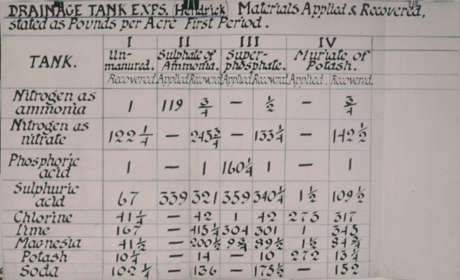 DRAINAGE TANK EXPS. (Hendrick) Materials Applied & Recovered,
stated as Pounds per Acre First Period.
TANK. I II III IV
Un-manured. Sulphate of Ammonia. Super-phosphate. Muriate of Potash.
Recovered Applied Recovered Applied Recovered Applied Recovered.
Nitrogen as ammonia 1 119 ¾ — ½ — ¾
Nitrogen as nitrate 122¼ — 245¾ — 133¼ — 142½
Phosphoric acid 1 — 1 160¼ 1 — 1
Sulphuric acid 67 339 321 359 340¼ 1½ 109½
Chlorine 41¼ — 42 1 42 273 317
Lime 167 — 415¼ 304 301 1 345
Magnesia 41½ — 200½ 9¾ 89½ 1½ 84¾
Potash 10¼ — 14 — 10 272 13¼
Soda 102¼ — 136 — 175½ — 152